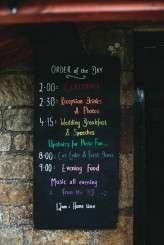 ORDER of the DAY
2:00: CEREMONY
2:30: Reception Drinks
& Photos
4:15: Wedding Breakfast
& Speeches
Upstairs for Music Fun...
8:00: Cut Cake & First Dance
9:00: Evening Food
Music all evening
from the
12am: Home Time